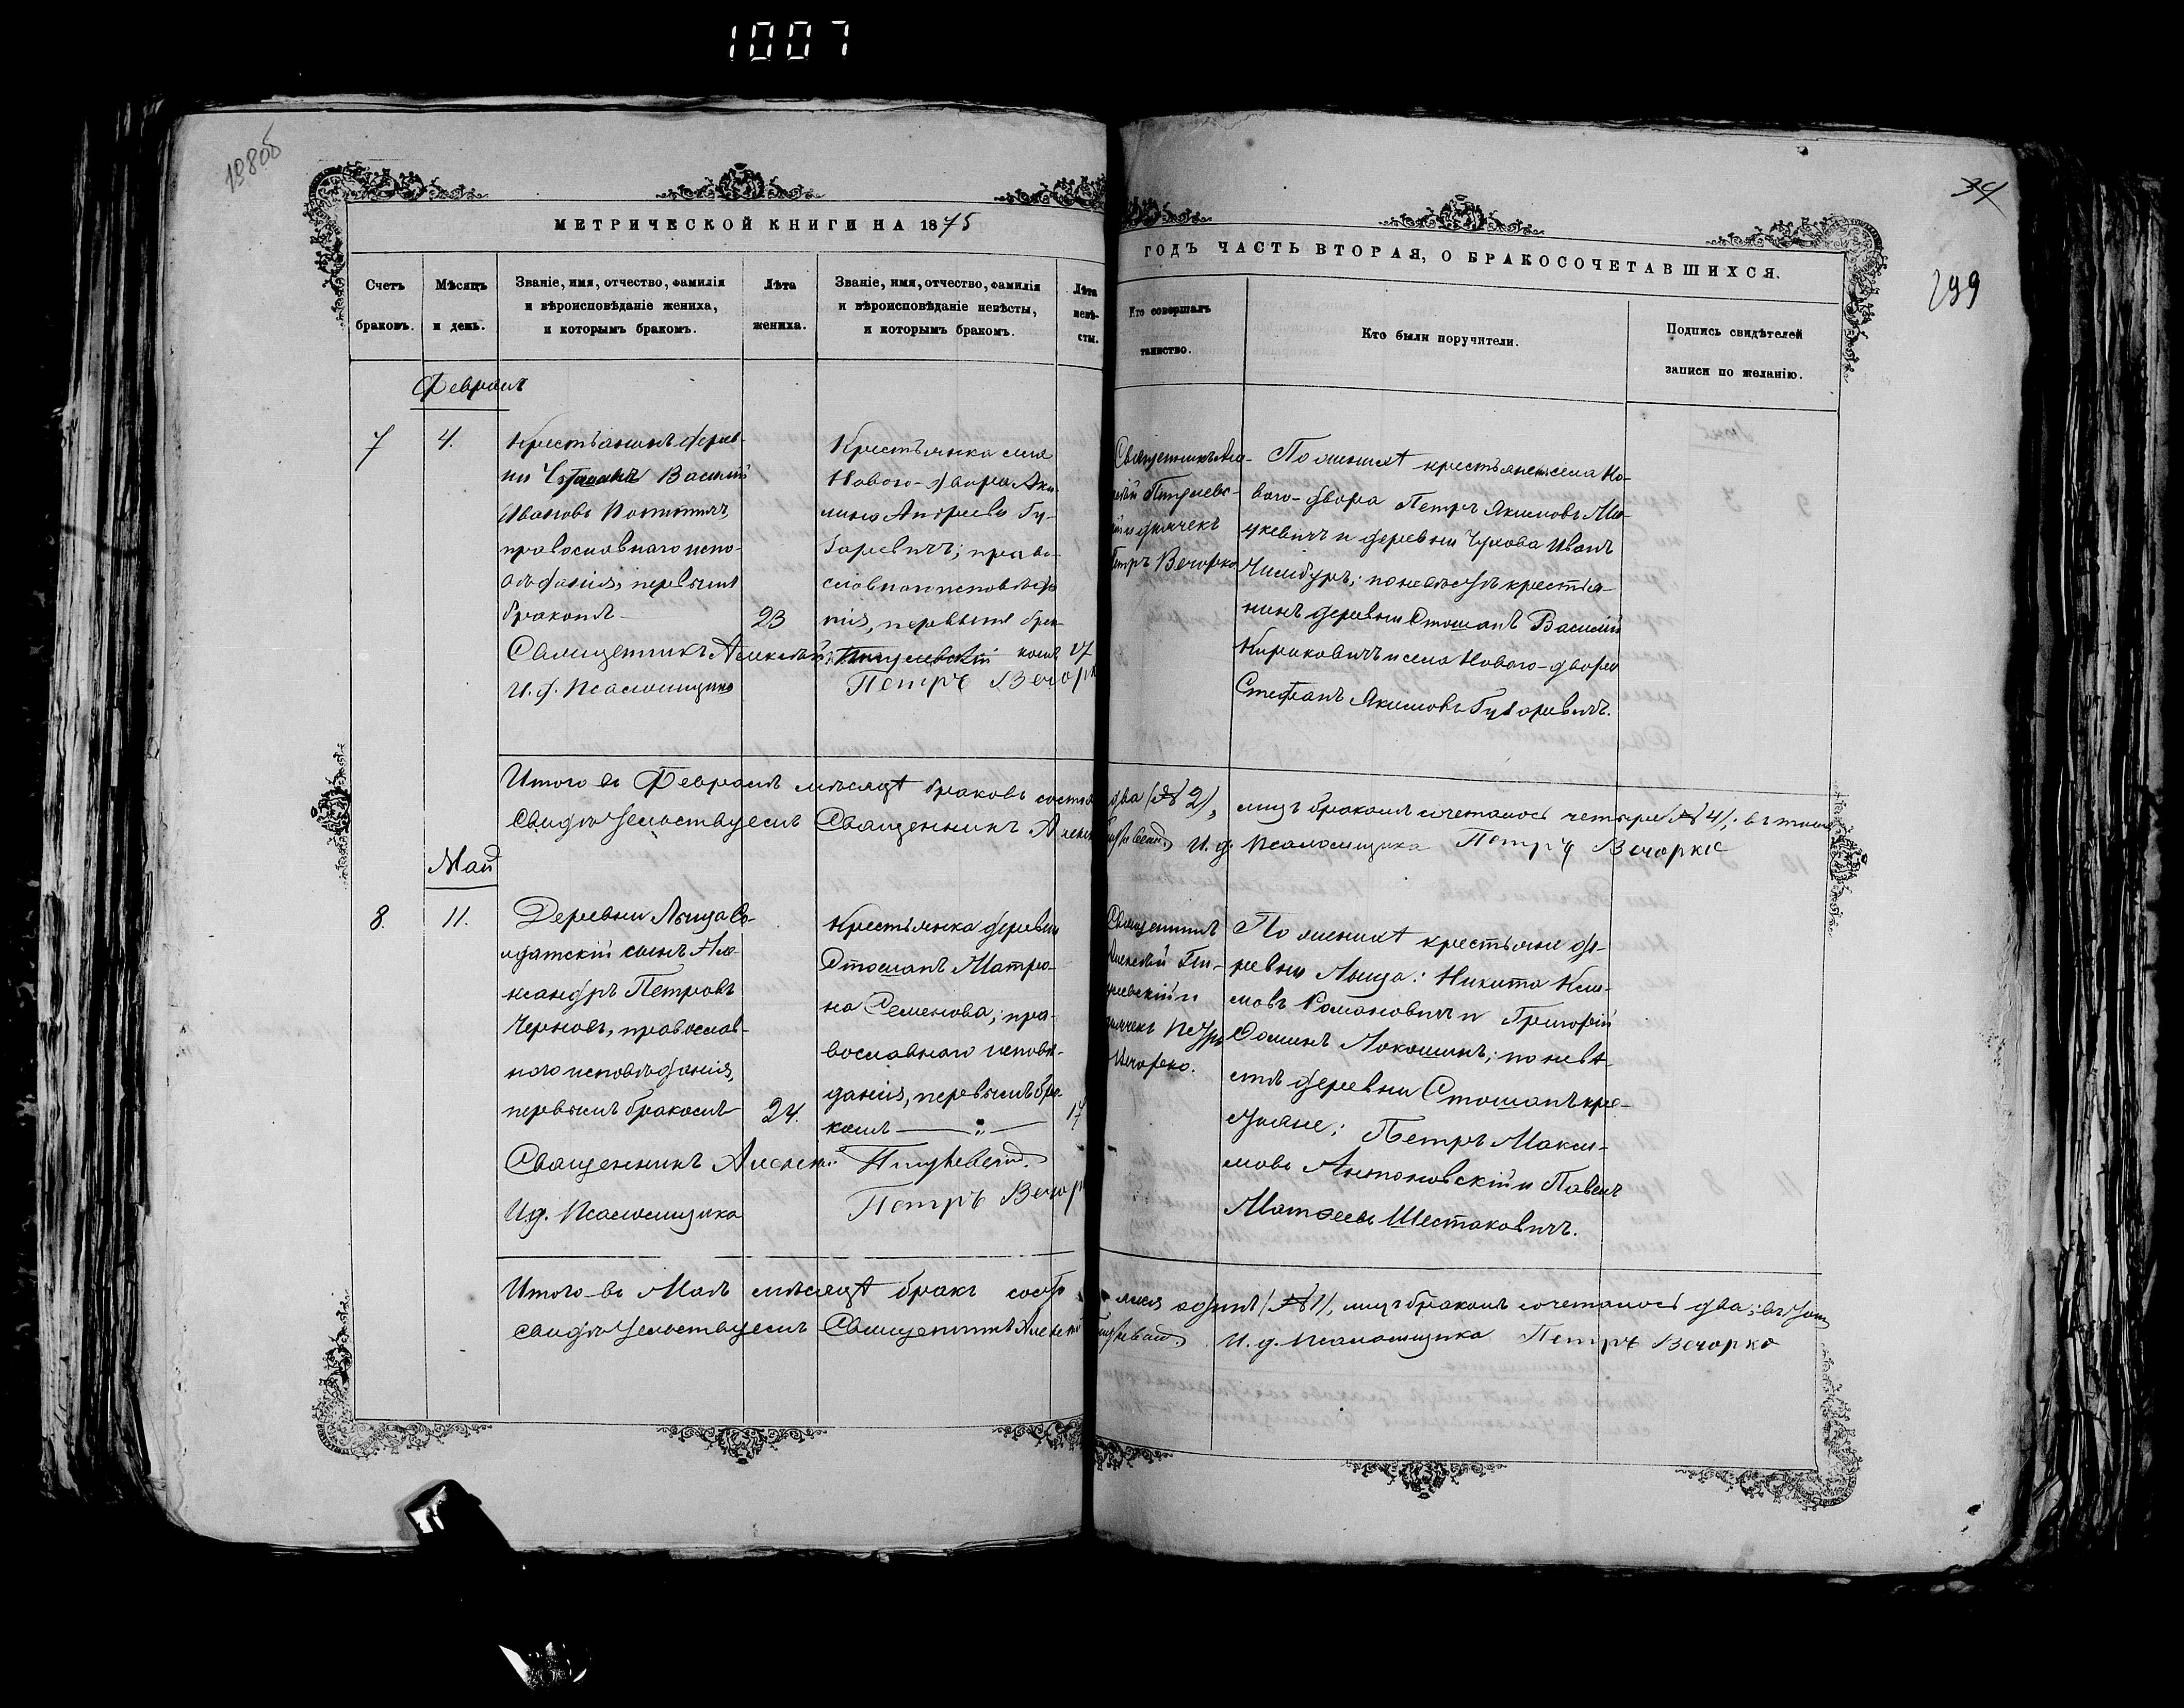 1007
34
299
МЕТРИЧЕСКОЙ КНИГИ НА 1875
ГОДЪ ЧАСТЬ ВТОРАЯ, О БРАКОСОЧЕТАВШИХСЯ.
Счетъ
браковъ.
Мѣсяцъ
и день.
Званіе, имя, отчество, фамилія
и вѣроисповѣданіе жениха,
и которымъ бракомъ.
Лѣта
жениха.
Званіе, имя, отчество, фамилія
и вѣроисповѣданіе невѣсты,
и которымъ бракомъ.
Лѣта
невѣ-
сты.
Кто совершалъ
таинство.
Кто были поручители.
Подпись свидѣтелей
записи по желанію.
Февраль
7
4.
Крестьянинъ дерев-
ни Василій
Ивановъ
православнаго испо-
вѣданія, первымъ
бракомъ
23
Крестьянка села
Нового-двора Аки-
лина Андреева Гу-
даревичъ; право-
славнаго исповѣда
нія, первымъ бра-
комъ
17
Священникъ Але-
и дьячекъ
Петръ Вечорко
По женихѣ крестьяне села Но-
вого-двора Петръ Якимовъ
и деревни Чухова Иванъ
по невѣстѣ крестья-
нинъ деревни Отошанъ Василій
Кириковичъ и села Нового-двора
Стефанъ Якимовъ Гударевичъ.
Священникъ Алексѣй
И. д. Псаломщика Петръ Вечорк
Итого въ Февралѣ мѣсяцѣ браковъ состоя
два (№ 2), лицъ бракомъ сочеталось четыре (№ 4); въ томъ
Свидѣтельствуемъ Священникъ Алексѣ
И. д. Псаломщика Петръ Вечорко
Май
8.
11.
Деревни Лыща Со-
лдатскій сынъ Але-
ксандръ Петровъ
Черновъ, православ-
ного исповѣданія,
первымъ бракомъ
24.
Крестьянка деревни
Отошанъ Матро-
на Семенова; пра-
вославнаго исповѣ-
данія, первымъ бра-
комъ
17
Священникъ
Алексѣй Пи-
дьячекъ Петръ
Вечорко.
По женихѣ крестьяне де-
ревни Лыща: Никита Кли-
мовъ Романовичъ и Григорій
Ѳоминъ Локошинъ; по невѣ-
стѣ деревни Отошанъ кре-
стьяне; Петръ Макси-
мовъ Антоновскій и Павелъ
Матѳеевъ Шестаковичъ.
Священникъ Алексѣй
И.д. Псаломщика Петръ Вечор
Итого въ Маѣ мѣсяцѣ бракъ состо
ялся одинъ (№ 1), лицъ бракомъ сочеталось два; въ томъ
свидѣтельствуемъ Священникъ Алексѣй
И. д. Псаломщика Петръ Вечорко